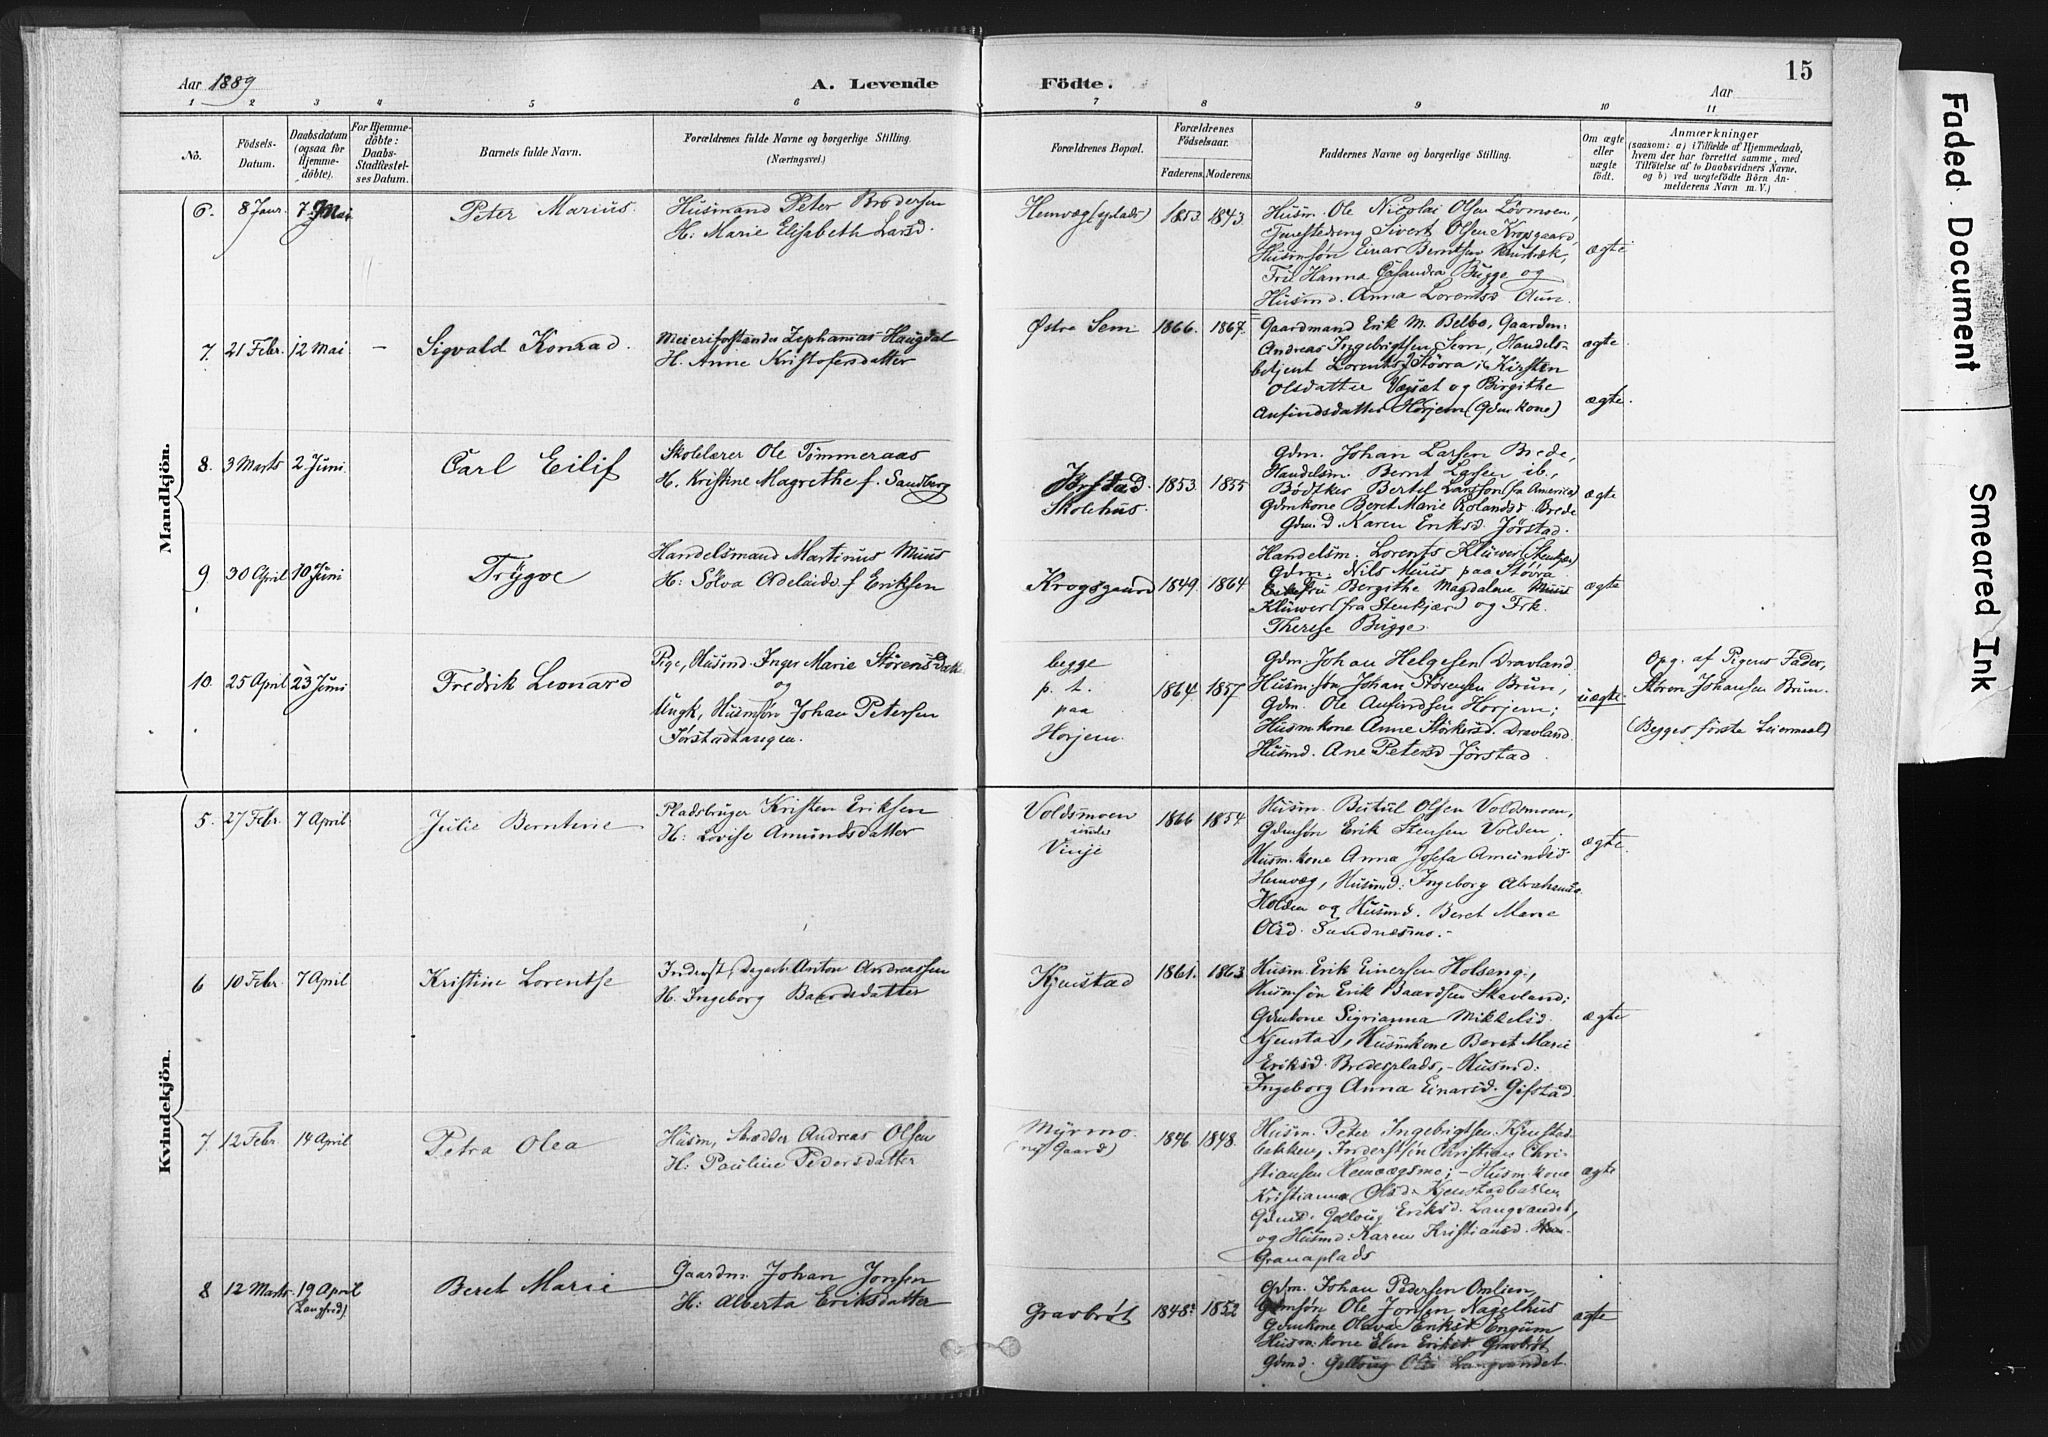 Aar 1889
A. Levende
Födte.
15
Aar
1 2 3 4 5 6 7 8 9 10 11
No.
Födsels-
Datum.
Daabsdatum
(ogsaa for
Hjemme-
döbte).
For Hjemme-
döbte:
Daabs-
Stadfæstel-
ses Datum.
Barnets fulde Navn.
Forældrenes fulde Navne og borgerlige Stilling.
(Næringsvei.)
Forældrenes Bopæl.
Forældrenes
Födselsaar.
Faderens. Moderens.
Faddernes Navne og borgerlige Stilling.
Om ægte
eller
uægte
födt.
Anmærkninger
(saasom: a) i Tilfælde af Hjemmedaab,
hvem der har forrettet samme, med
Tilföielse af to Daabsvidners Navne,
og b) ved uægtefödte Börn An-
melderens Navn m. V.)
Mandkjön.
6. 8 Janr. 7 Mai
Peter Marius.
Husmand Peter Brodersen
H: Marie Elisabeth Larsd.
Hemvæg (splads)
1853 1843
Husm. Ole Nicolai Olsen Lövmoen,
Tjenestedreng Sivert Olsen Krogsgaard,
Husmsøn Einar Berntsen
Fru Hanna Casandra Bugge og
Husmd. Anna Lorentsd Aun.
ægte
7. 21 Febr. 12 Mai —
Sigvald Konrad.
Meieriforstander Zephanias Haugdal
H. Anne Kristofersdatter
Østre Sem
1866. 1867.
Gaardmand Erik M. Belbo, Gaardm:
Andreas Ingebrigtsen Sem, Handels-
betjent Lorents Støvra, Kirsten
Olsdatter Vægset og Birgithe
Anfindsdatter Horjem (Gdmkone)
ægte
ægte.
8. 3 Marts 2. Juni
Carl Eilif
Skolelærer Ole Tømmeraas
H. Kristine Magrethe f. Sandberg
Jørstad
Skolehus.
1853 1855
Gdm. Johan Larsen Brede,
Handelsm. Bernt Larsen ib.,
Bødker Bertel Larsson (fra America)
Gdmkone Beret Marie Rolandsd. Brede
Gdm. D. Karen Eriksd. Jørstad.
ægte
9. 30 April 10 Juni
Trygve
Handelsmand Martinus Muus
H: Sølva Adelaide f. Eriksen
Krogsgaard
1849 1864
Handelsm. Lorents Klüwer (Stenkjær)
Gdm. Nils Muus paa Støvra
Fru Bergithe Magdalene Muus
Klüwer (fra Stenkjær) og Frk.
Therese Bugge.
ægte
10. 25 April 23 Juni
Fredrik Leonard
Pige, Husmd. Inger Marie Størensdatt
og
Ungk, Husmsøn Johan Petersen
Jørstadtangen.
begge
p. t.
paa
Horjem.
1864 1857
Gdm. Johan Helgesen Dravland
Husm.søn Johan Størensen Brun,
Gdm. Ole Anfindsen Horjem;
Husmkone Anne Størkersd. Dravland.
Husmd. Ane Petersd Jørstad.
uægte
Opg. af Pigens Fader,
Støren Johansen Brun.
(Begges første Leiermaal)
Kvindekjön.
5. 27 Febr. 7 April
Julie Berntine
Pladsbruger Kristen Eriksen
H: Lovise Amundsdatter
Voldsmoen
under
Vinje
1866 1854
Husm. Butul Olsen Voldsmoen,
Gdmsøn Erik Stensen Volden,
Husm.kone Anna Josefa Amundsd-
Hemvæg, Husmd: Ingeborg Abrahamsd
Holden og Husmd. Beret Marie
Olsd. Sandnesmo.-
ægte.
6 10 Febr. 7 April
Kristine Lorentse
Inderst, Dagarb. Anton Andreassen
H. Ingeborg Baardsdatter
Kjenstad
1861. 1863
Husm. Erik Einersen Holseng,
Husmsøn Erik Baardsen Skavland;
Gdmkone Sigrianna Mikkelsd.
Kjenstad, Husmkone Beret Marie
Eriksd. Bredesplads, - Husmd:
Ingeborg Anna Einarsd. Gifstad.
ægte
7. 12 Febr. 14 April
Petra Olea
Husm, Skrædder Andreas Olsen
H: Pauline Pedersdatter
Myrmo
(ny Gaard)
1846 1848.
Husm. Peter Ingebrigtsen Kjenstad
bakken, Inderstsøn Christian Chri-
stiansen Hemvægsmo; - Husm.kone
Kristianna Olsd. Kjenstadbakken
Gdmd. Gollaug Eriksd. Langvandet,
og Husmd. Karen Kristiansd.
Granaplads
ægte
8 12 Marts. 19 April
(Langfred)
Beret Marie
Gaardm. Johan Jonsen
H: Alberta Eriksdatter
Gravbrøt
1848 1852
Gdm. Johan Pedersen Omlien,
Gdmsøn Ole Jonsen Nagelhus
Gdmkone Olava Eriksd Engum
Husm.kone Elen Eriksd Gravbrøt
Gdmd. Gollaug Olsd Langvandet.
ægte
Faded Document
Smeared Ink